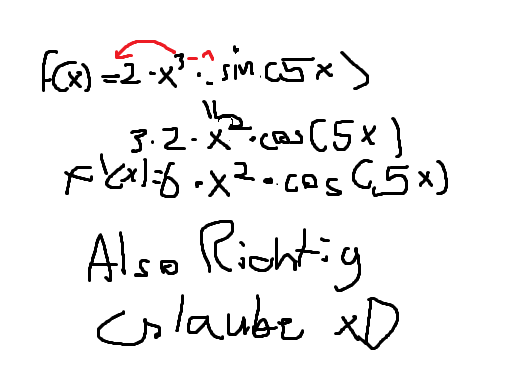 f(x) = 2 · x³⁻¹ · sin(5x)
3 · 2 · x² · cos(5x)
F'(x) = 6 · x² · cos(5x)
Also Richtig
Glaube xD